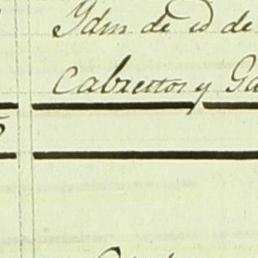 Ydm de id de
Cabrettos y Ga